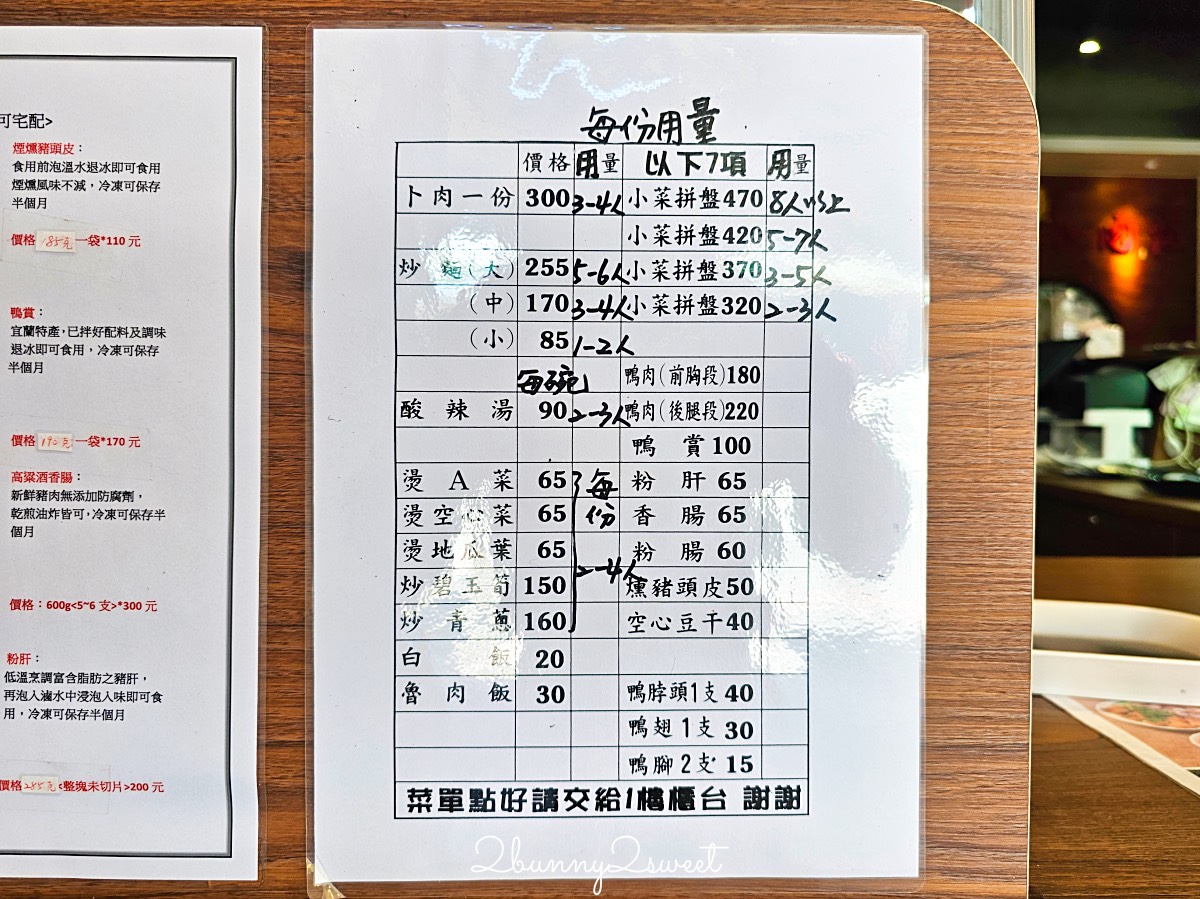 可宅配>
煙燻豬頭皮：
食用前泡溫水退冰即可食用
煙燻風味不減，冷凍可保存
半個月
價格 185克 一袋*110 元
鴨賞：
宜蘭特產，已拌好配料及調味
退冰即可食用，冷凍可保存
半個月
價格 190克 一袋*170 元
高粱酒香腸：
新鮮豬肉無添加防腐劑，
乾煎油炸皆可，冷凍可保存半
個月
價格：600g<5~6 支>*300 元
粉肝：
低溫烹調富含脂肪之豬肝，
再泡入滷水中浸泡入味即可食
用，冷凍可保存半個月
價格 285克 <整塊未切片>200 元
每份用量
價格 用量 以下7項 用量
卜肉一份 300 3-4人 小菜拼盤470 8人以上
小菜拼盤420 5-7人
炒麵(大) 255 5-6人 小菜拼盤370 3-5人
(中) 170 3-4人 小菜拼盤320 2-3人
(小) 85 1-2人
每碗 鴨肉(前胸段)180
酸辣湯 90 2-3人 鴨肉(後腿段)220
鴨賞 100
燙A菜 65 每 粉肝 65
燙空心菜 65 份 香腸 65
燙地瓜葉 65 粉腸 60
炒碧玉筍 150 2-4人 燻豬頭皮50
炒青蔥 160 空心豆干40
白飯 20
魯肉飯 30 鴨脖頭1支 40
鴨翅1支 30
鴨腳2支 15
菜單點好請交給1樓櫃台 謝謝
2bunny2sweet